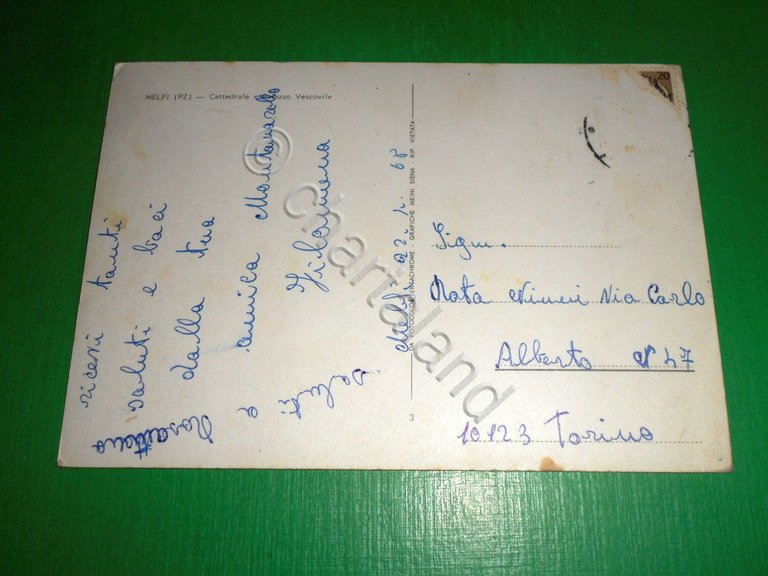 MELFI (PZ) — Cattedrale e Palazzo Vescovile
ricevi tanti
saluti e baci
dalla tua
amica Montanarollo
Filomena
saluti
a
Melfi 22.1.68
DA FOTOCOLOR KODAK EKTACHROME - GRAFICHE MEINI SIENA - RIP. VIETATA
3
20
Sigm.
Rota Nineri Via Carlo
Alberto N 47
10123 Torino
© chartaland